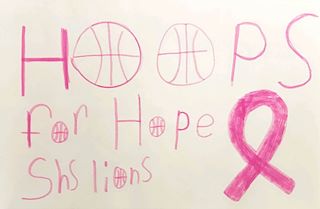 HOOPS
for Hope
Shs lions